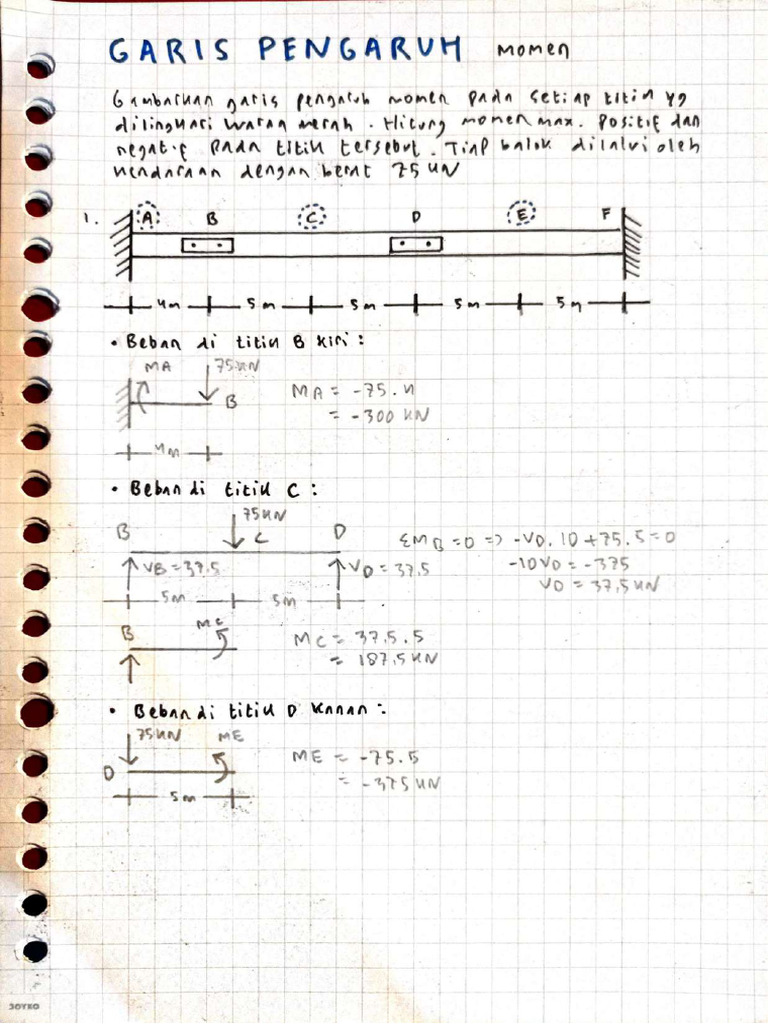 GARIS PENGARUH momen
Gambarkan garis pengaruh momen pada setiap titik yg
dilingkari warna merah. Hitung momen max. Positif dan
negatif pada titik tersebut. Tiap balok dilalui oleh
kendaraan dengan berat 75 kN
1. A B C D E F
4m 5m 5m 5m 5m
• Beban di titik B kiri:
MA 75 kN
B
MA = -75.4
= -300 kN
4m
• Beban di titik C:
75 kN
B C D
ΣMB = 0 => -VD.10 + 75.5 = 0
VB = 37,5 VD = 37,5
-10VD = -375
5m 5m
VD = 37,5 kN
B MC
MC = 37,5.5
= 187,5 kN
• Beban di titik D kanan:
75 kN ME
D
ME = -75.5
= -375 kN
5m
JOYKO